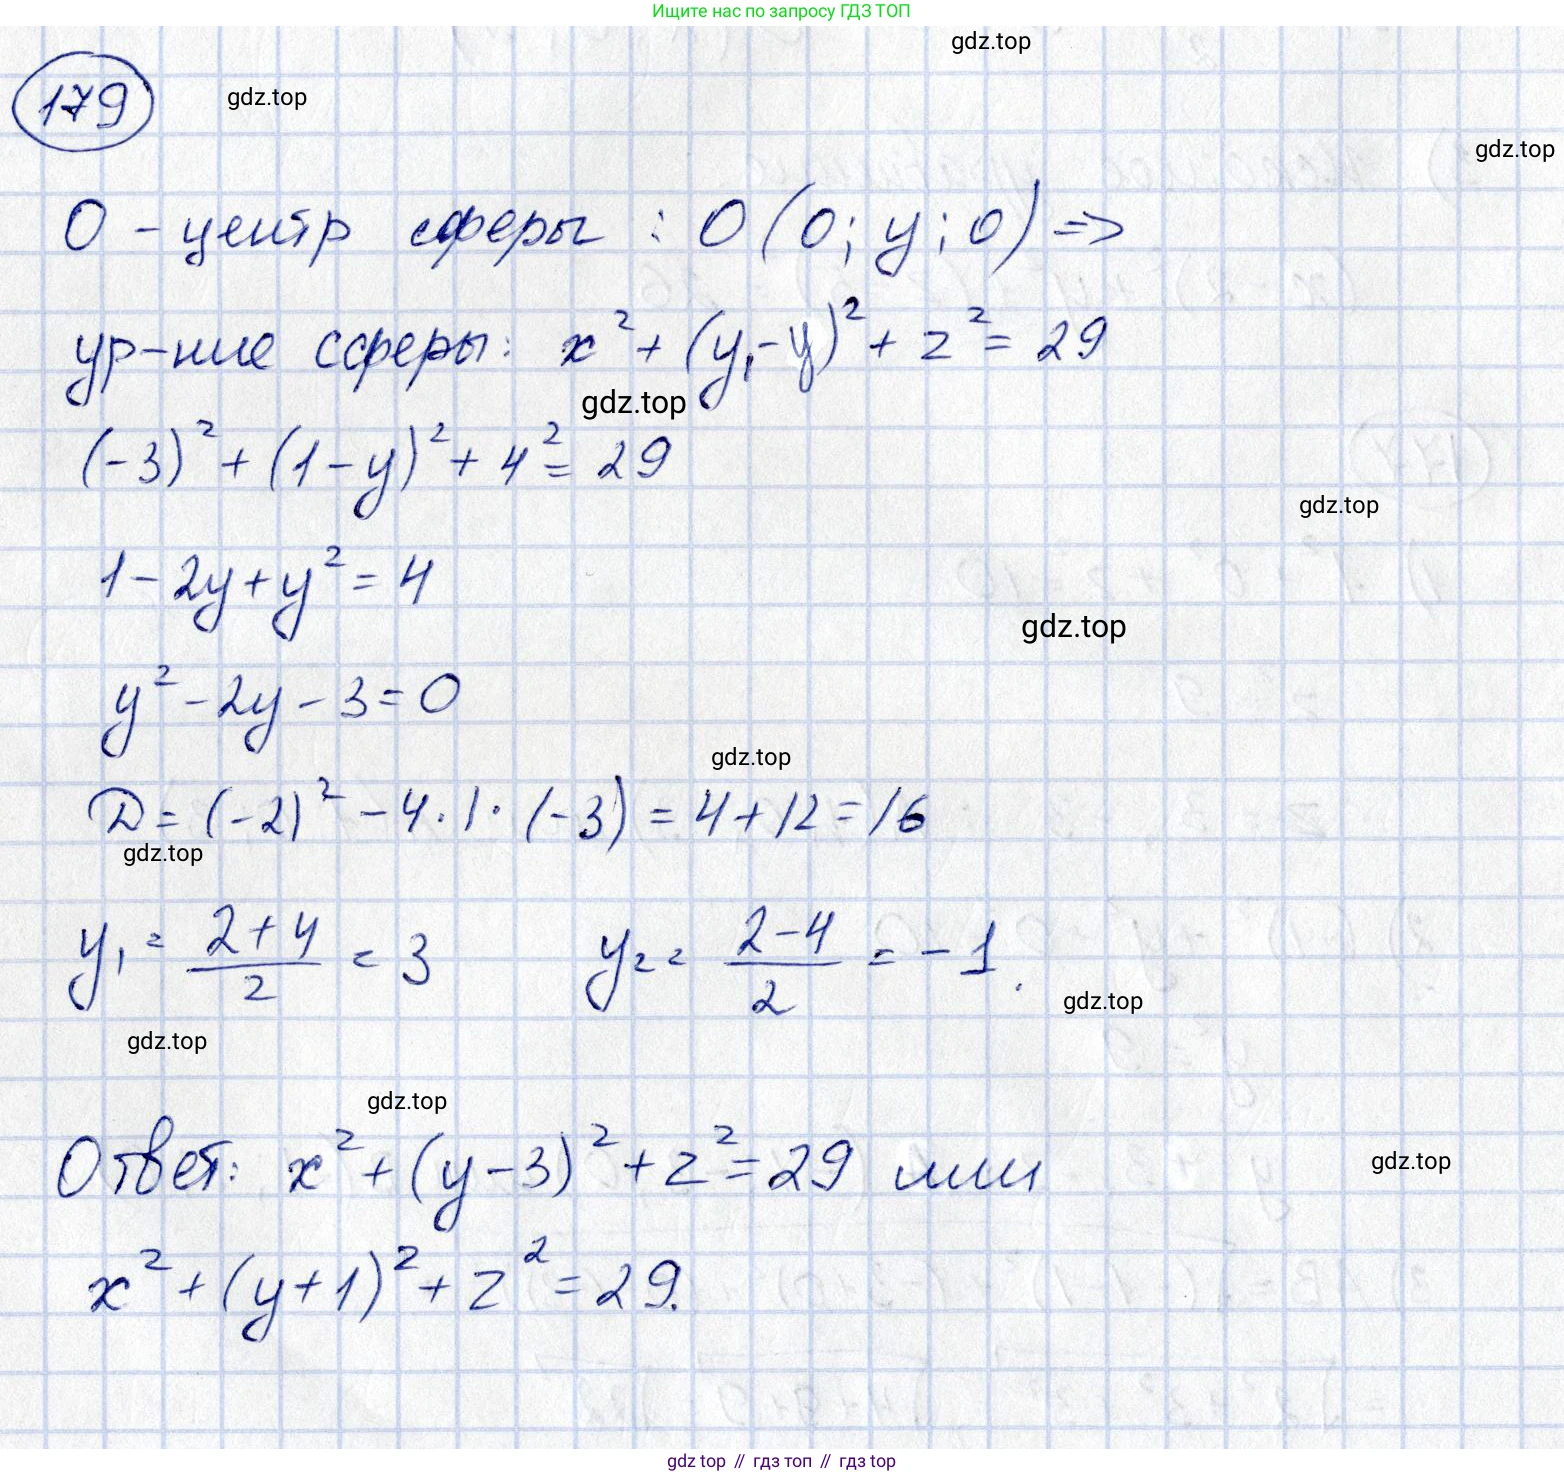 Ищите нас по запросу ГДЗ ТОП
gdz.top
179
gdz.top
gdz.top
О - центр сферы : О (0; y; 0) =>
ур-ние сферы: x² + (y₁ - y)² + z² = 29
gdz.top
(-3)² + (1 - y)² + 4² = 29
gdz.top
1 - 2y + y² = 4
gdz.top
y² - 2y - 3 = 0
gdz.top
D = (-2)² - 4 · 1 · (-3) = 4 + 12 = 16
gdz.top
y₁ = (2+4)/2 = 3 y₂ = (2-4)/2 = -1.
gdz.top
gdz.top
gdz.top
Ответ: x² + (y - 3)² + z² = 29 или
gdz.top
x² + (y + 1)² + z² = 29.
gdz top // гдз топ // гдз top